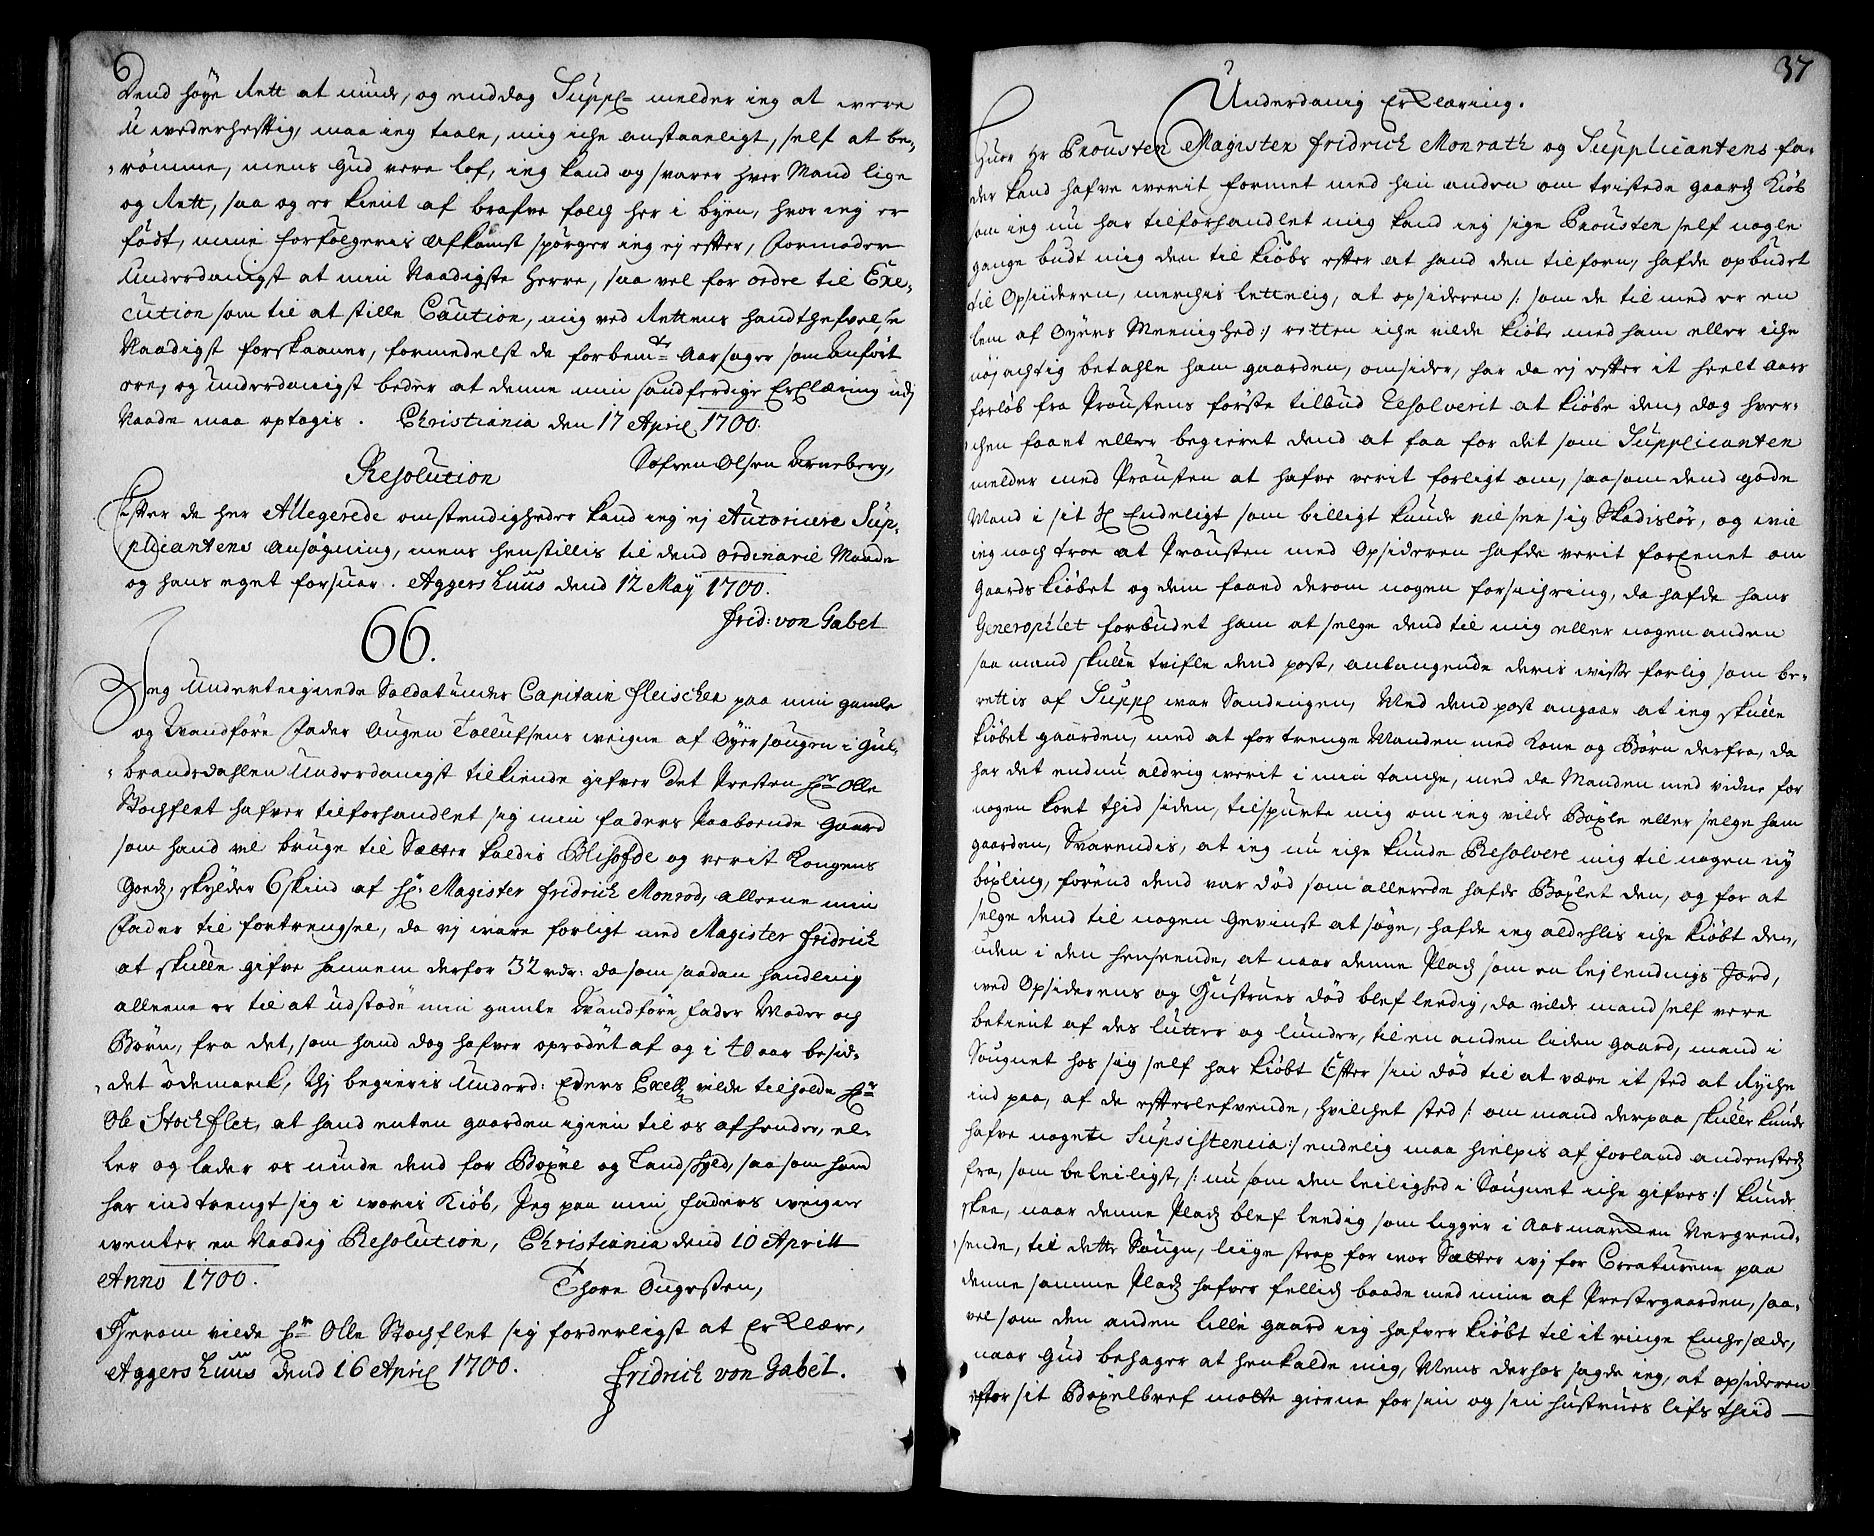 Dend høye Rett at niude, og enddog Suppl: melder ieg at were
u wederhefftig, maa ieg taale, mig iche anstaaeligt, self at be-
römme, mens Gud vere lof, ieg kand og svarer hver Mand lige
og Rett, saa og er kient af brafve folch her i byen, hvor ieg er
födt, mine forfölgeris Afkomst spörger ieg ej effter, Formoder
Underdanigst at min Naadigste Herre, saa vel for ordre til Exe-
cution som til at stille Caution, mig ved Rettens handthefvelse
Naadigst forskaaner, formedelst de forbemte Aarsager som Anfört
ere, og Underdanigst beder at denne min sandferdige Erklæring udj
Naade maa optagis. Christiania den 17 April 1700.
Sofren Olsen Arneberg,
Resolution
Effter de her Allegerede omstendigheder kand ieg ej Autorisere Sup-
plicantens Ansögning, mens henstillis til dend ordinarie Maade
og hans eget forsuar. Aggershuus dend 12 May 1700.
Frid: von Gabel
66.
Jeg Underteignede Soldat under Capitain Fleischer paa min gamle
og Vandföre Fader Augen Tollufsens weigne af Öyer Sougen i Gul-
brandsdahlen Underdanigst tilkiende gifver Det Presten Hr Olle
Stochflet hafver tilforhandlet sig min Faders Paaboende Gaard
som hand vil bruge til Sætter kaldis Blihofde og verit Kongens
Goedz, skylder 6 skind af Hr: Magister Fridrich Monrod, alleene min
Fader til fortrengsel, da vj ware forligt med Magister Fridrich
at skulle gifve hannem derfor 32 rdr: da som saadan handling
alleene er til at udstöde min gamle Vandföre Fader Moder och
Börn, fra det, som hand dog hafver oprödet af og i 40 aar besid-
det ödemarck, Thj begieris Underd: Eders Excell: vilde tilholde Hr
Ole Stochflet, at hand enten gaarden igien til os afhender, el-
ler og lader os niude dend for Böxel og Landskyld, saasom hand
har indtrengt sig i woris Kiöb, Jeg paa min Faders weigne
wenter en Naadig Resolution, Christiania dend 10 Aprill
Anno 1700.
Thore Ougesten,
Herom vilde Hr Olle Stochflet sig forderligst at Erklære,
Aggershuus dend 16 April 1700.
Fridrich von Gabel.
37
Underdanig Erklæring.
Huor Hr Prousten Magister Fridrich Monrath og Supplicantens fa-
der kand hafve werit formet med hin anden om tvistede gaards Kiöb
som ieg nu har tilforhandlet mig kand ieg sige Prousten self nogle
gange budt mig den til kiöbs effter at hand den tilforn, hafde opbudet
til Opsideren, merchis lettelig, at opsideren /: som de til med er en
lem af Öyers Menighed :/ retten iche vilde kiöbe med ham eller iche
nöjachtig betahle ham gaarden, omsider, har da ej effter it heelt aars
forlöb fra Proustens förste tilbud Resolverit at kiöbe den, dog hver-
chen faaet eller begieret dend at faa for det som Supplicanten
melder med Prousten at hafve verit forligt om, saasom dend gode
Mand i sit Endeligt som billigt kunde vil see sig Skadislös, og wil
ieg noch troe at Prousten med Opsideren hafde verit foreenet om
Gaards kiöbet og dem faaed derom nogen forsichring, da hafde hans
Generositet forbudet ham at selge dend til mig eller nogen anden
saa mand skulle tvifle dend post, anlangende deris wisse forlig som be-
rettis af Suppl war Sandingen, Med dend post angaar at ieg skulle
kiöbet gaarden, med at fortrenge Manden med Kone og Börn derfra, da
har det endnu aldrig werit i min tanche, med da Manden med vidne for
nogen kort thid siden, tilspurte mig om ieg vilde Böxle eller selge ham
gaarden, Svarendis, at ieg nu iche kunde Resolvere mig til nogen ny
böxling, forend dend var död som allerede hafde Böxlet den, og for at
selge dend til nogen Gevinst at söge, hafde ieg aldelis iche kiöbt den,
uden i den henseende, at naar denne Pladz som en lejlendings Jord,
wed Opsiderens og Hustrues död blef leedig, da vilde mand self vere
betient af des lutter og lunder, til en anden liden gaard, mand i
Sougnet hos sig self har kiöbt Effter sin död til at være it sted at Ryche
ind paa, af de effterlefvende, hvilchet sted /: om mand derpaa skulle kunde
hafve nogen Supsistencia :/ endelig maa hielpis af forland andenstedz
fra, som beleiligst, /: nu som den leilighed i Sougnet iche gifves :/ kunde
skee, naar denne Pladz blef leedig som ligger i Aasmarcken Nergrend-
sende, til dette Sougn, liige strax for wor Sætter wj for Creaturene paa
denne samme Pladz hafver fellidz baade med mine af Prestegaarden, saa-
vel som den anden lille gaard ieg hafver kiöbt til it ringe Enchesæde,
naar Gud behager at henkalde mig, Mens derhos sagde ieg, at opsideren
effter sit Böxelbref motte gierne for sin og sin hustrues lifs thiid